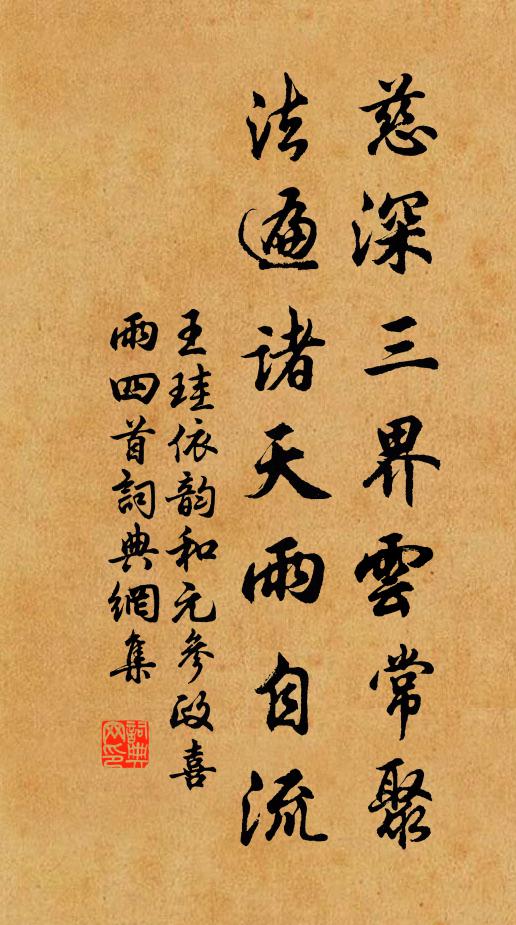 慈深三界雲常聚
法遍諸天雨自流
王珪依韵和元參政喜
雨四首詞典網集
詞典網印